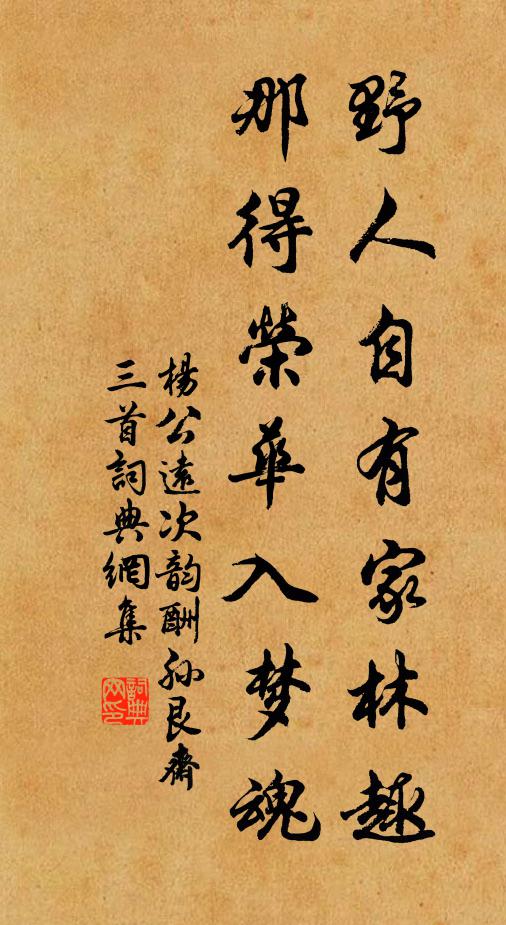 野人自有家林趣
那得榮華入梦魂
楊公遠次韵酬孙艮齋
三首詞典網集
詞典网印